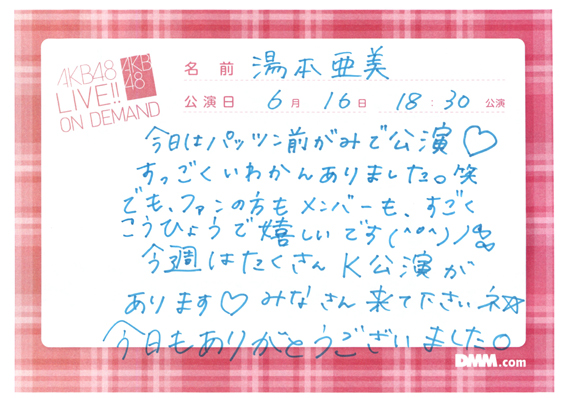 AKB48
LIVE!!
ON DEMAND
AKB
48
名前 湯本亜美
公演日 6月 16日 18:30 公演
今日はパッツン前がみで公演♡
すっごくいわかんありました。笑
でも、ファンの方もメンバーも、すごく
こうひょうで嬉しいです(^o^)ノ
今週はたくさんK公演が
あります♡みなさん来て下さいネ☆
今日もありがとうございました。
DMM.com